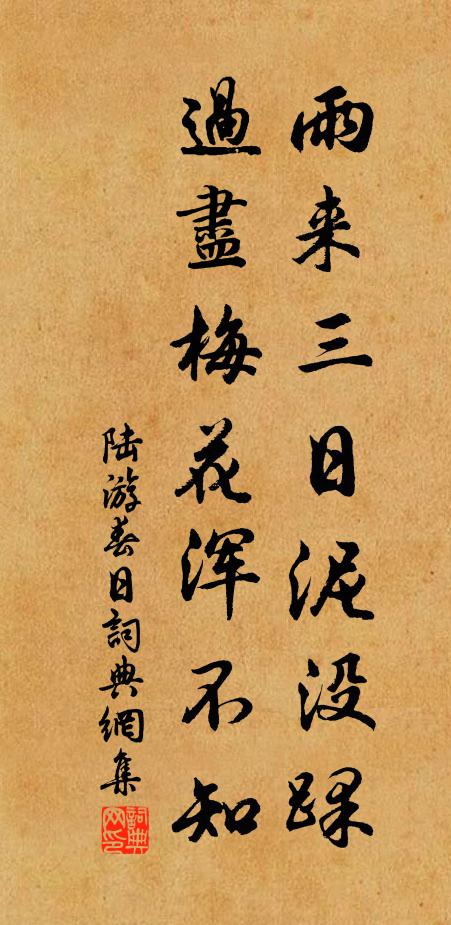 雨来三日泥没踝
過盡梅花渾不知
陆游春日詞典網集
詞典網印